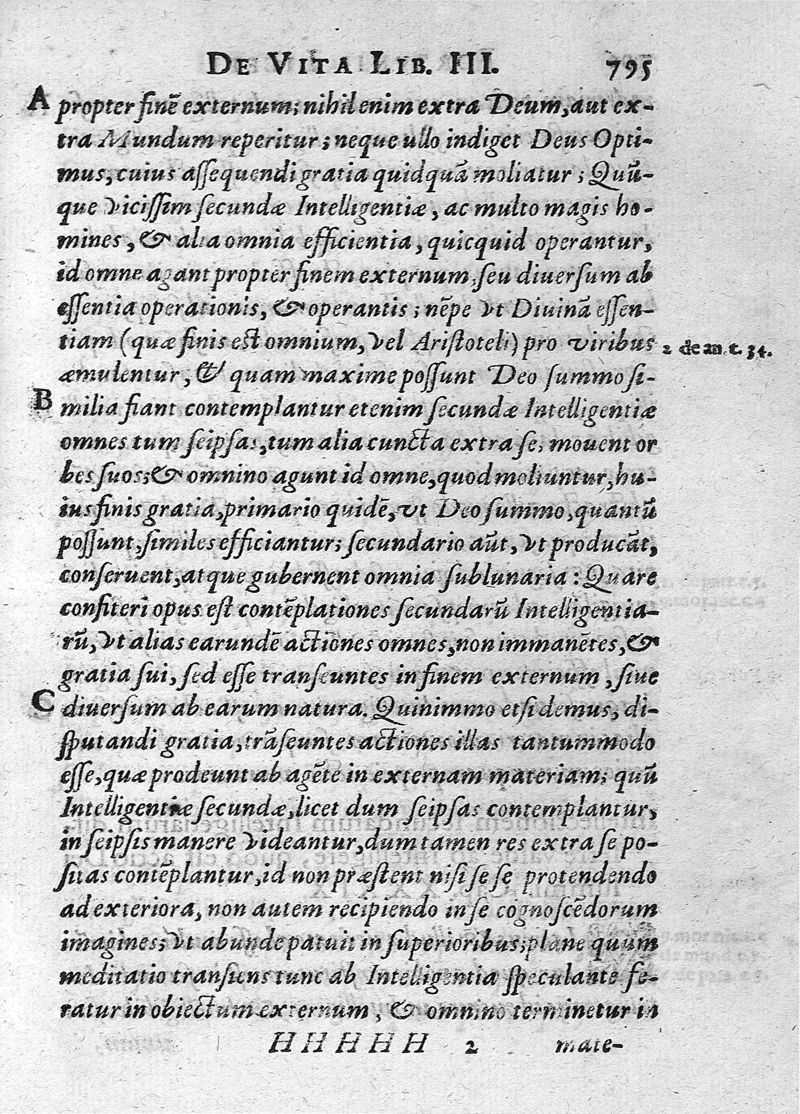 DE VITA LIB. III. 795
A propter finẽ externum; nihil enim extra Deum, aut ex-
tra Mundum reperitur; neque ullo indiget Deus Opti-
mus, cuius assequendi gratia quidquã moliatur; Quũ-
que vicissim secundæ Intelligentiæ, ac multo magis ho-
mines, & alia omnia efficientia, quicquid operantur,
id omne agant propter finem externum, seu diversum ab
essentia operationis, & operantis; nẽpe vt Divinã essen-
tiam (quæ finis est omnium, vel Aristoteli) pro viribus
2 de an. t. 34.
æmulentur, & quam maxime possunt Deo summo si-
B milia fiant contemplantur etenim secundæ Intelligentiæ
omnes tum seipsas, tum alia cuncta extra se, movent or
bes suos; & omnino agunt id omne, quod moliuntur, hu-
ius finis gratia, primario quidẽ, vt Deo summo, quantũ
possunt, similes efficiantur; secundario aũt, vt producãt,
conseruent, atque gubernent omnia sublunaria: Quare
confiteri opus est contẽplationes secundarũ Intelligentia-
rũ, vt alias earundẽ actiones omnes, non immanẽtes, &
gratia sui, sed esse transeuntes in finem externum, siue
C diuersum ab earum natura. Quinimmo etsi demus, di-
sputandi gratia, trãseuntes actiones illas tantummodo
esse, quæ prodeunt ab agẽte in externam materiam; quũ
Intelligentiæ secundæ, licet dum seipsas contemplantur,
in seipsis manere videantur, dum tamen res extra se po-
sitas conteplantur, id non præstent nisi sese protendendo
ad exteriora, non autem recipiendo in se cognoscẽdorum
imagines; vt abunde patuit in superioribus; plane quum
meditatio transiens tunc ab Intelligentia speculante fe-
ratur in obiectum externum, & omnino terminetur in
HHHHH 2 mate-